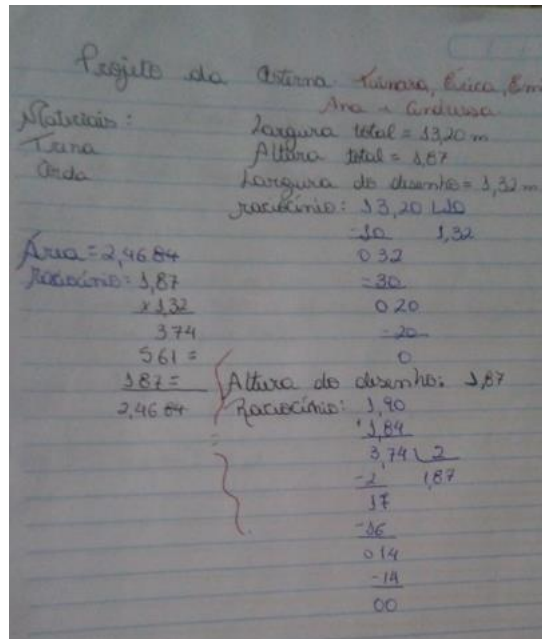 Projeto da Cisterna Tainara, Érica, Emi
Ana e Andressa
Materiais:
Trena
Corda
Largura total = 13,20 m
Altura total = 1,87
Largura do desenho = 1,32 m
raciocínio: 13,20 10
-10 1,32
032
-30
020
-20
0
Área = 2,4684
Raciocínio: 1,87
x 1,32
374
561 =
187 =
2,4684
Altura do desenho: 1,87
Raciocínio: 1,90
+1,84
3,74 2
-2 1,87
17
-16
014
-14
00